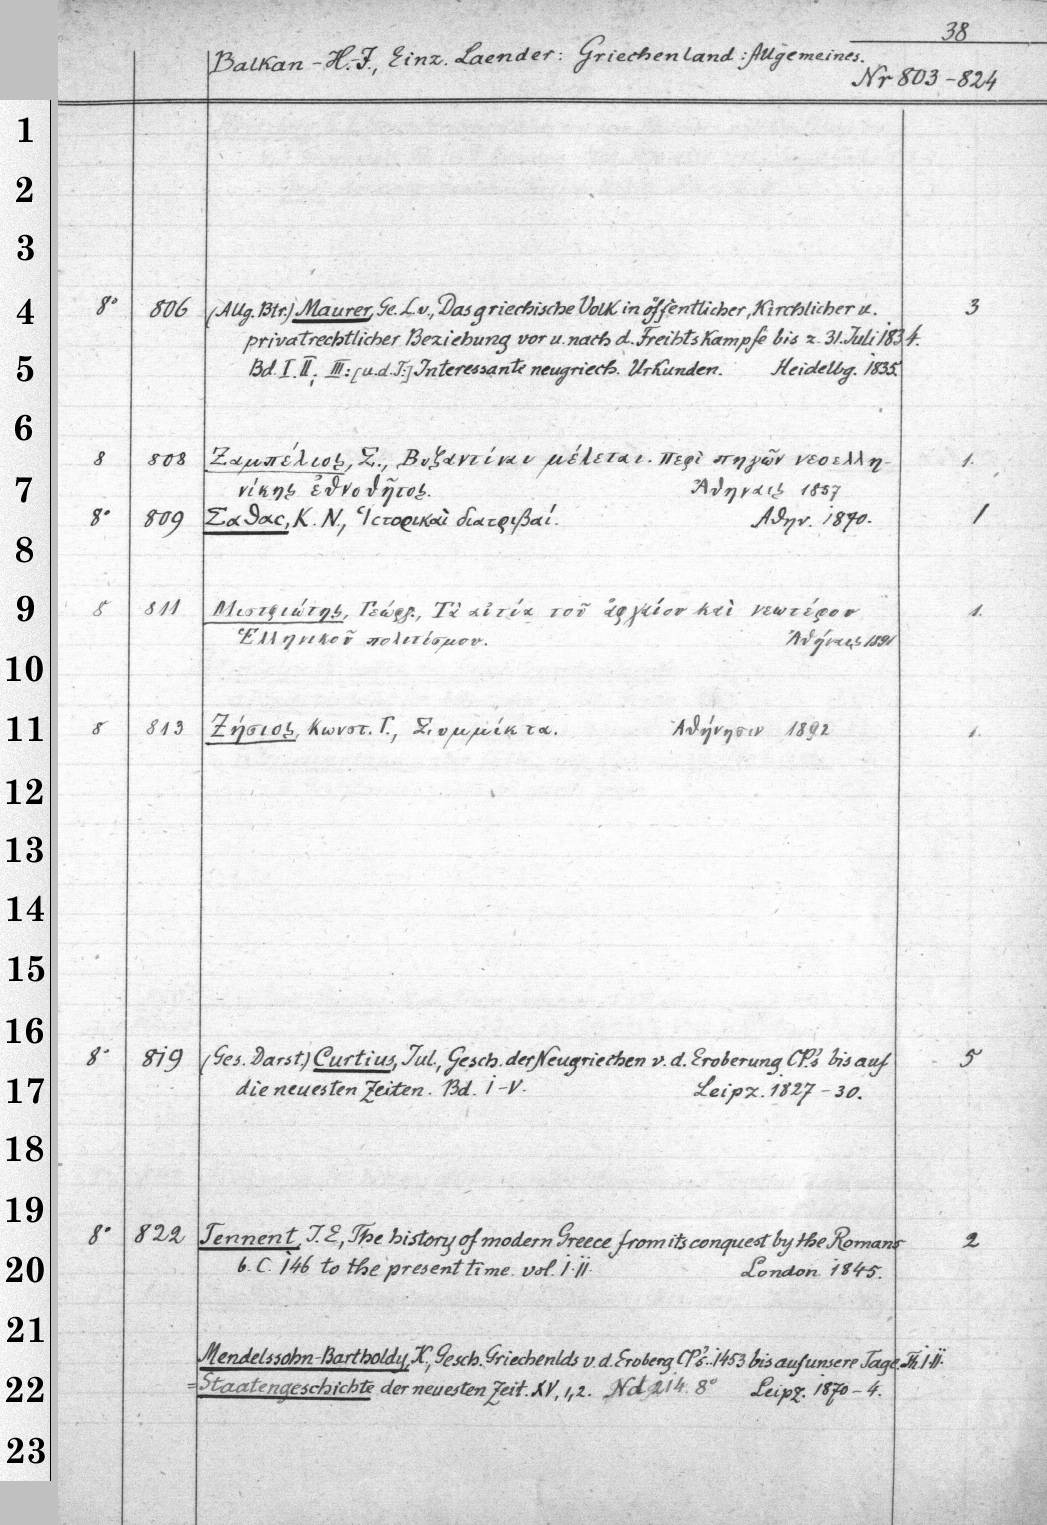 38
Balkan-H.-J., Einz. Laender: Griechenland: Allgemeines.
Nr 803-824
1
2
3
4
8° 806 (Allg. Btr.) Maurer, Ge. L. v., Das griechische Volk in öffentlicher, kirchlicher u. 3
privatrechtlicher Beziehung vor u. nach d. Freihtskampfe bis z. 31. Juli 1834.
5
Bd. I. II, III: [u.d.T:] Interessante neugriech. Urkunden. Heidelbg. 1835.
6
8 808 Ζαμπέλιος, Σ., Βυζαντίναι μέλεται. περὶ πηγῶν νεοελλη- 1.
7
νίκης ἐθνοθῆτος. Ἀθηναις 1857
8° 809 Σαθας, Κ. Ν., Ἱστορικαὶ διατριβαί. Αθην. 1870. 1
8
9
8 811 Μιστριώτης, Γεώργ., Τὰ αἰτία τοῦ ἀρχαίου καὶ νεωτέρου 1.
Ἑλληνικοῦ πολιτίσμου. Ἀθήναις 1891
10
11
8 813 Ζήσιος, Κωνστ. Γ., Συμμίκτα. Ἀθήνησιν 1892 1.
12
13
14
15
16
8° 819 (Ges. Darst.) Curtius, Jul., Gesch. der Neugriechen v. d. Eroberung CP's bis auf 5
17
die neuesten Zeiten. Bd. I-V. Leipz. 1827-30.
18
19
8° 822 Tennent, J. E., The history of modern Greece from its conquest by the Romans 2
20
b. C. 146 to the present time. vol. I. II. London 1845.
21
Mendelssohn-Bartholdy, K., Gesch. Griechenlds v. d. Eroberg CP's. 1453 bis auf unsere Tage. Th. I-II.
22
=Staatengeschichte der neuesten Zeit. XV, 1,2. Nd 214. 8° Leipz. 1870-4.
23